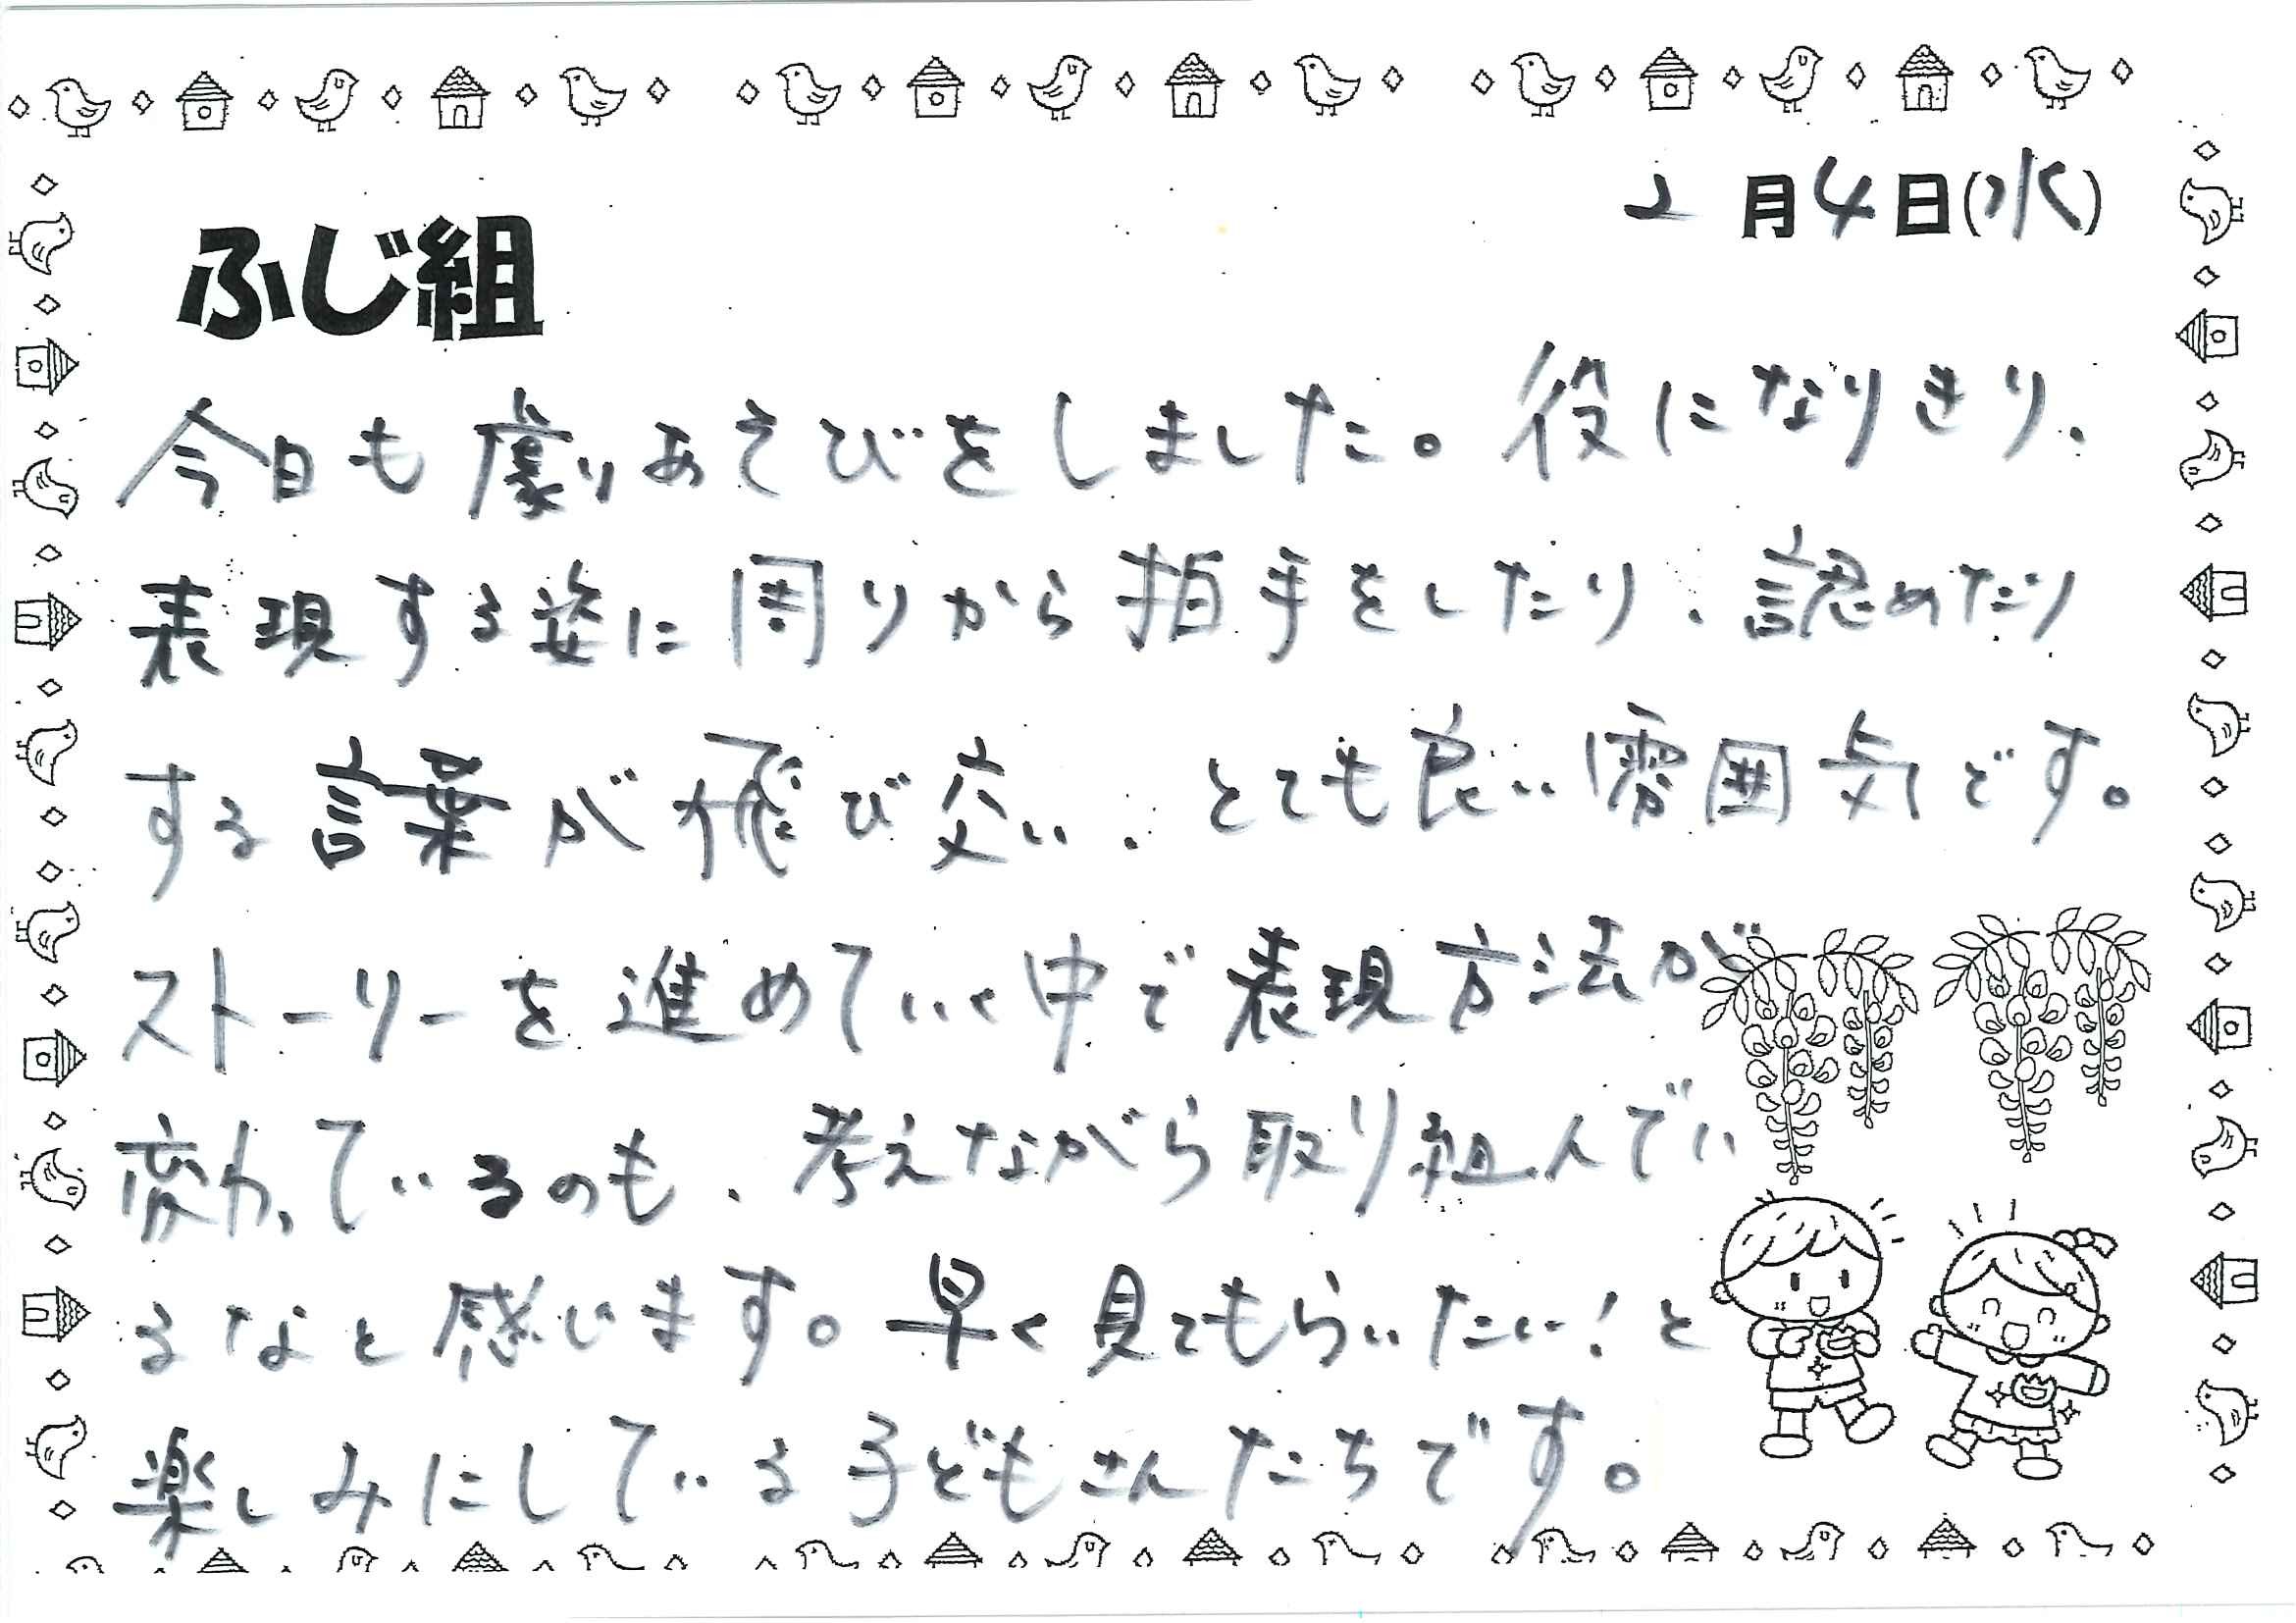 2月4日(水)
ふじ組
今日も劇あそびをしました。役になりきり、
表現する姿に周りから拍手をしたり、認めたり
する言葉が飛び交い、とても良い雰囲気です。
ストーリーを進めていく中で表現方法が
変わっているのも、考えながら取り組んでい
るなと感じます。早く見てもらいたい！と
楽しみにしている子どもさんたちです。